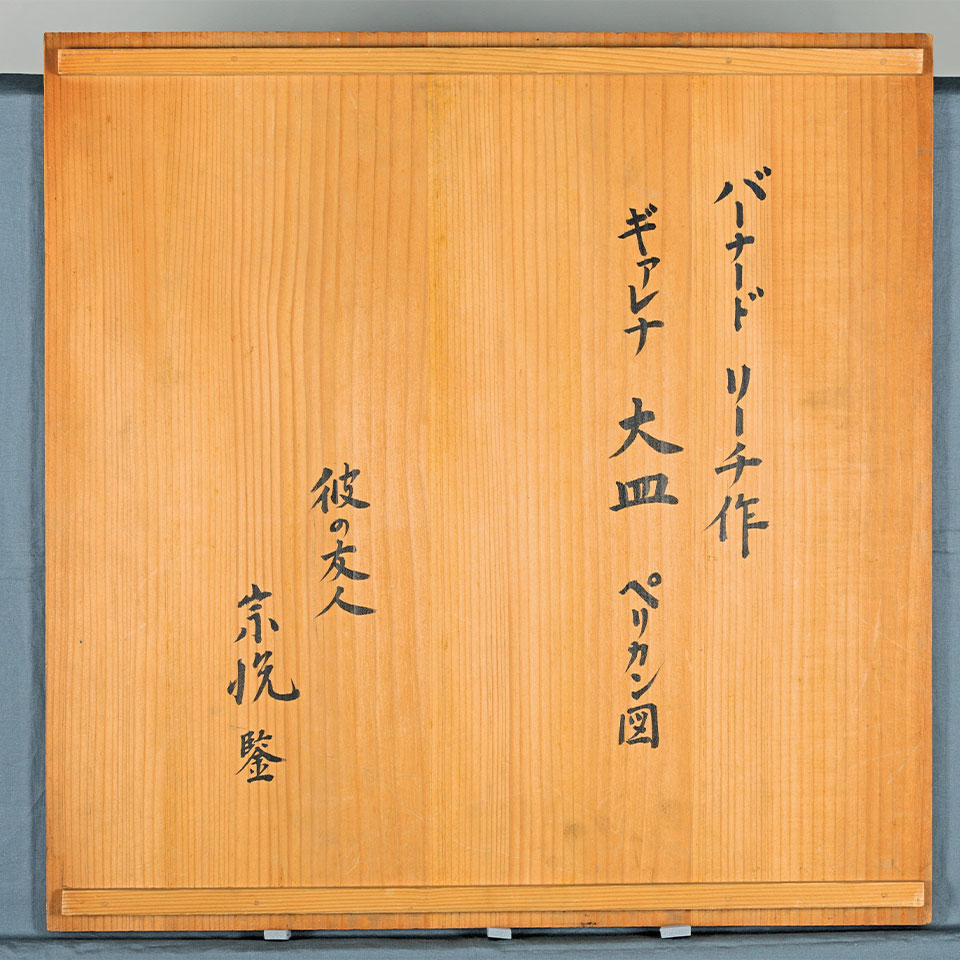 バーナード リーチ作
ギァレナ 大皿 ペリカン図
彼の友人
宗悦 鑒